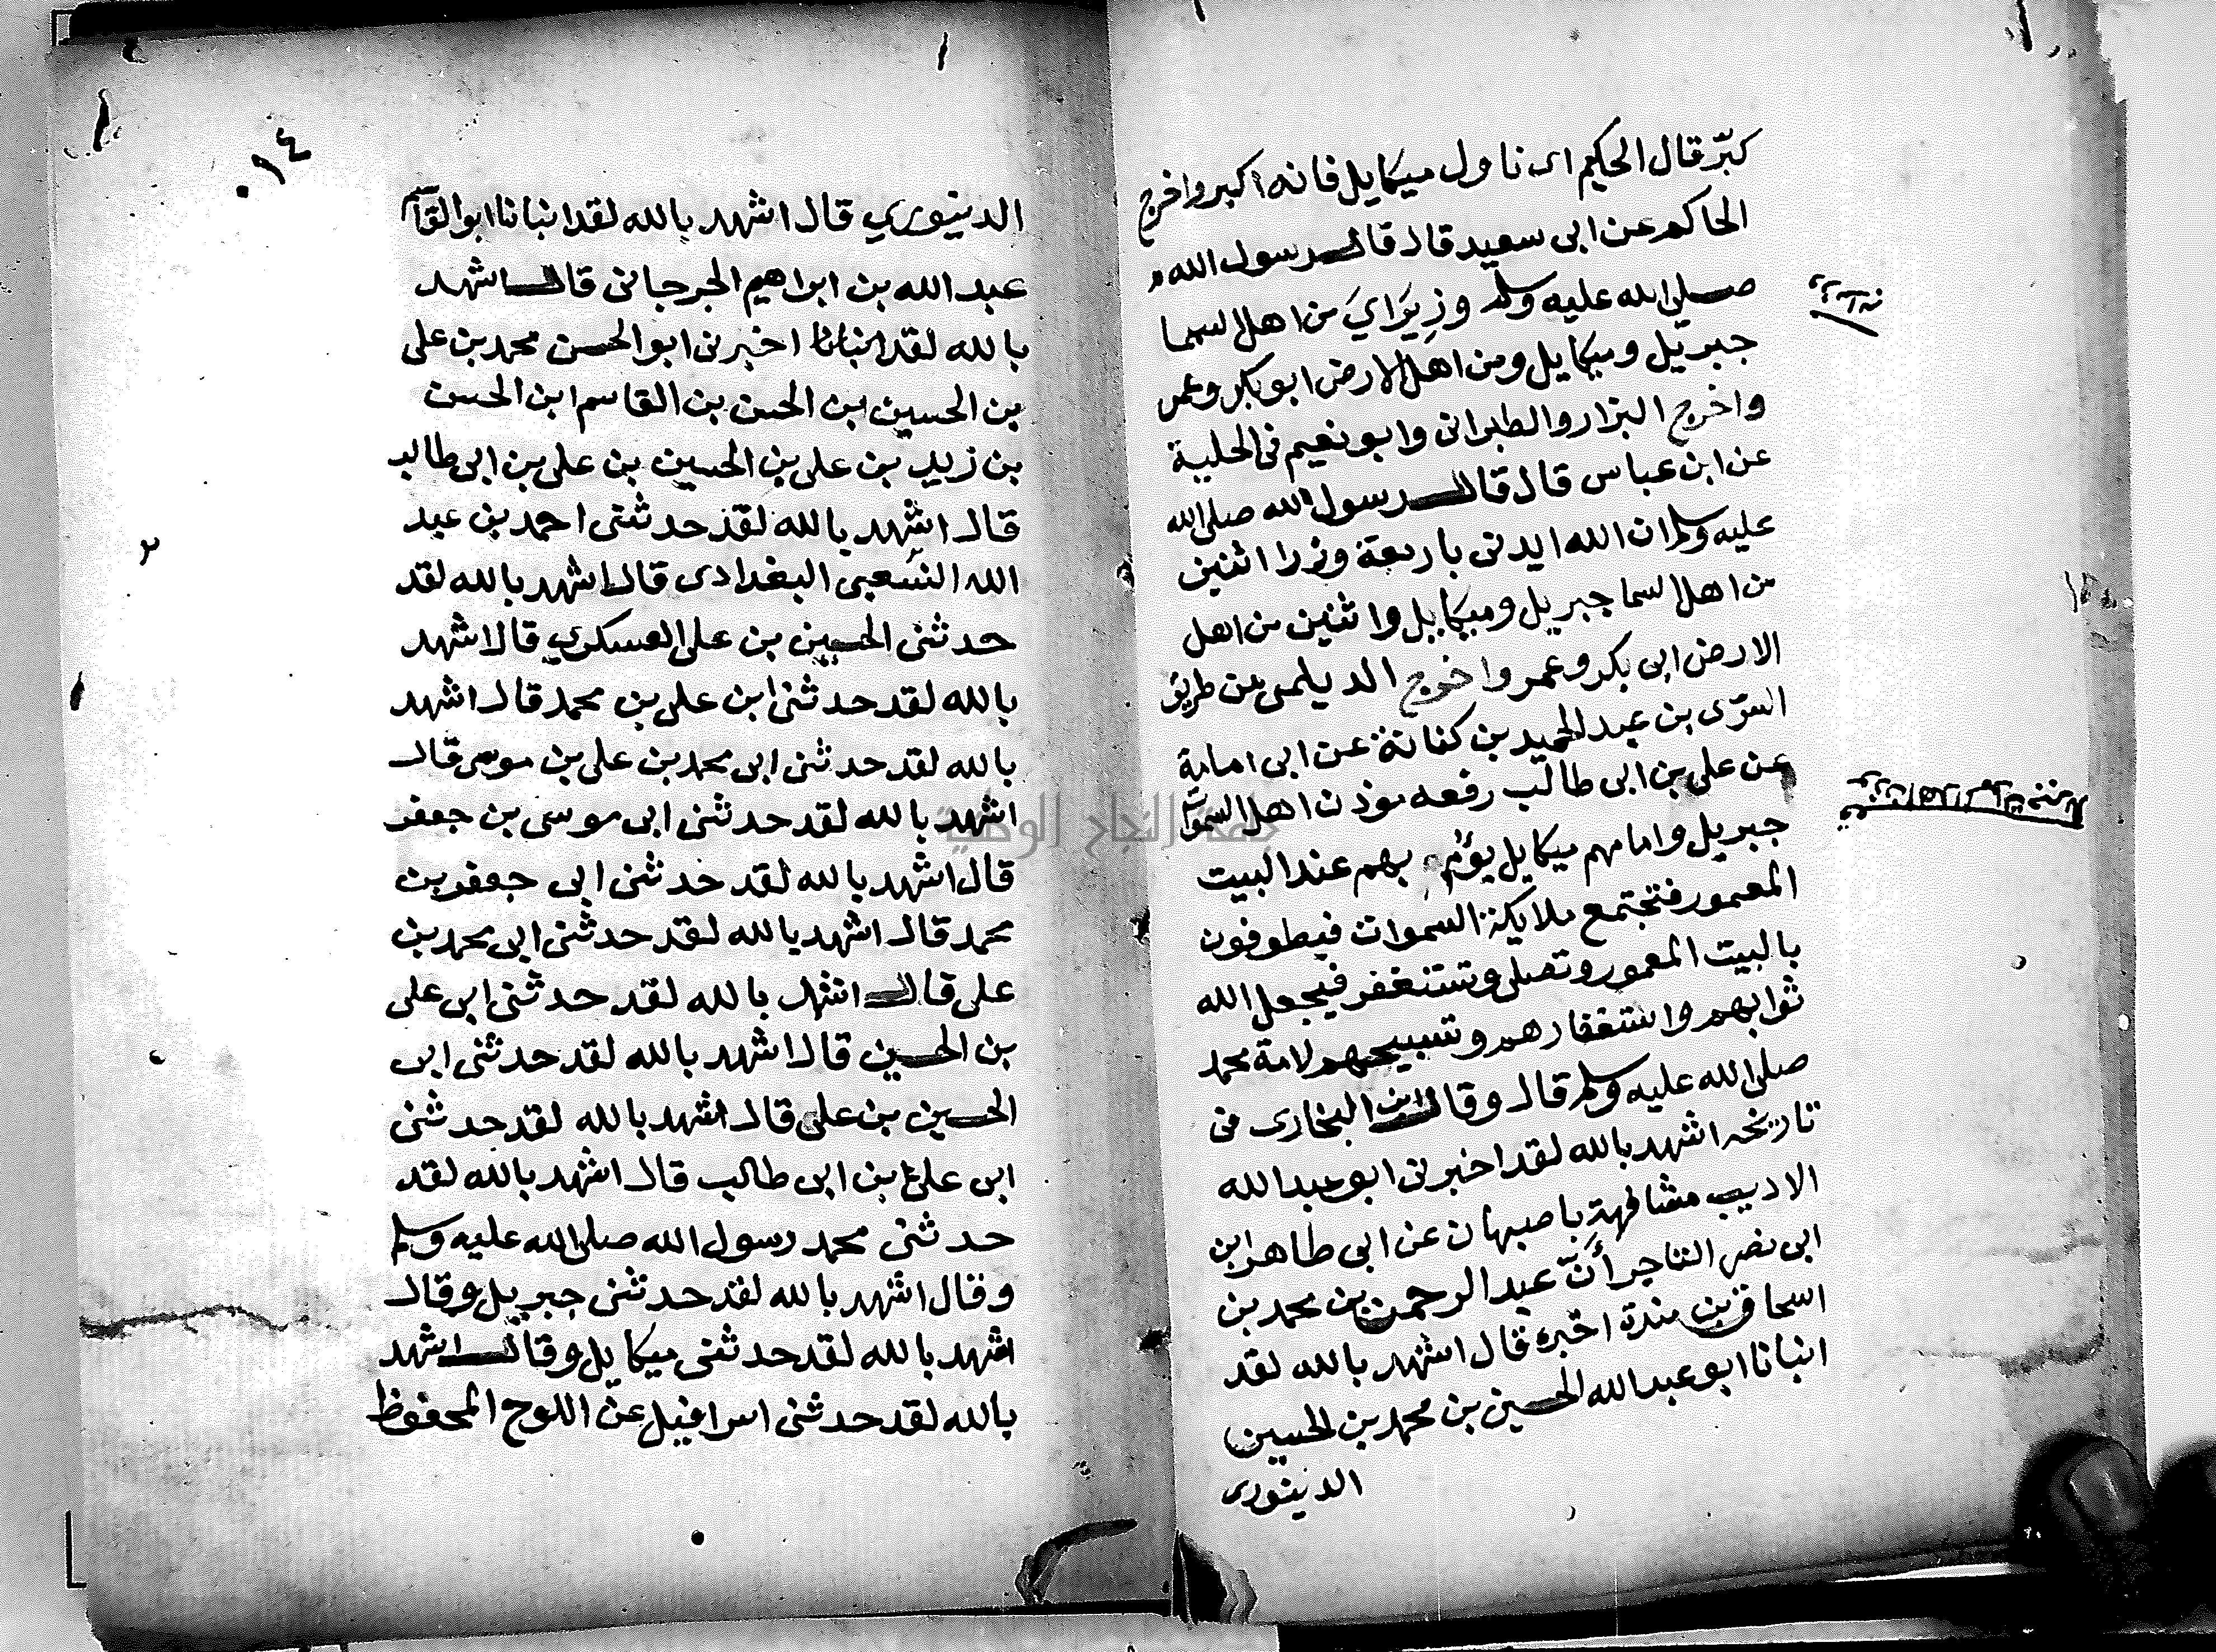 كبّر قال الحكيم اى ناول ميكايل فانه اكبر واخرج
الحاكم عن ابى سعيد قال قال رسول الله
صلى الله عليه وسلم وزيراي من اهل السما
جبريل وميكايل ومن اهل الارض ابو بكر وعمر
واخرج البزار والطبرانى وابو نعيم فى الحلية
عن ابن عباس قال قال رسول الله صلى الله
عليه وسلم ان الله ايدنى باربعة وزرا اثنين
من اهل السما جبريل وميكايل واثنين من اهل
الارض ابى بكر وعمر واخرج الديلمى من طريق
السرّى بن عبد الحميد بن كنانة عن ابى امامة
عن على بن ابى طالب رفعه موذن اهل السموات
جبريل وامامهم ميكايل يؤم بهم عند البيت
المعمور فتجتمع ملايكة السموات فيطوفون
بالبيت المعمور وتصلى وتستغفر فيجعل الله
ثوابهم واستغفارهم وتسبيحهم لامة محمد
صلى الله عليه وسلم قال وقال ابن البخارى فى
تاريخه اشهد بالله لقد اخبرنى ابو عبد الله
الاديب مشافهة باصبهان عن ابى طاهر ابن
ابى نصر التاجر أنّ عبد الرحمن بن محمد بن
اسحاق بن مندة اخبره قال اشهد بالله لقد
انبانا ابو عبد الله الحسين بن محمد بن الحسين
الدينورى
٠١٤
الدينوري قال اشهد بالله لقد انبانا ابو القاسم
عبد الله بن ابراهيم الجرجانى قال اشهد
بالله لقد انبانا اخبرنى ابو الحسن محمد بن على
بن الحسين ابن الحسن بن القاسم ابن الحسن
بن زيد بن على بن الحسين بن على بن ابى طالب
قال اشهد بالله لقد حدثنى احمد بن عبد
الله الشعبى البغدادى قال اشهد بالله لقد
حدثنى الحسين بن على العسكري قال اشهد
بالله لقد حدثنى ابن على بن محمد قال اشهد
بالله لقد حدثنى ابى محمد بن على بن موسى قال
اشهد بالله لقد حدثنى ابى موسى بن جعفر
قال اشهد بالله لقد حدثنى ابى جعفر بن
محمد قال اشهد بالله لقد حدثنى ابى محمد بن
على قال اشهد بالله لقد حدثنى ابى على
بن الحسين قال اشهد بالله لقد حدثنى ابى
الحسين بن على قال اشهد بالله لقد حدثنى
ابى على بن ابى طالب قال اشهد بالله لقد
حدثنى محمد رسول الله صلى الله عليه وسلم
وقال اشهد بالله لقد حدثنى جبريل وقال
اشهد بالله لقد حدثنى ميكايل وقال اشهد
بالله لقد حدثنى اسرافيل عن اللوح المحفوظ
جامعة النجاح الوطنية